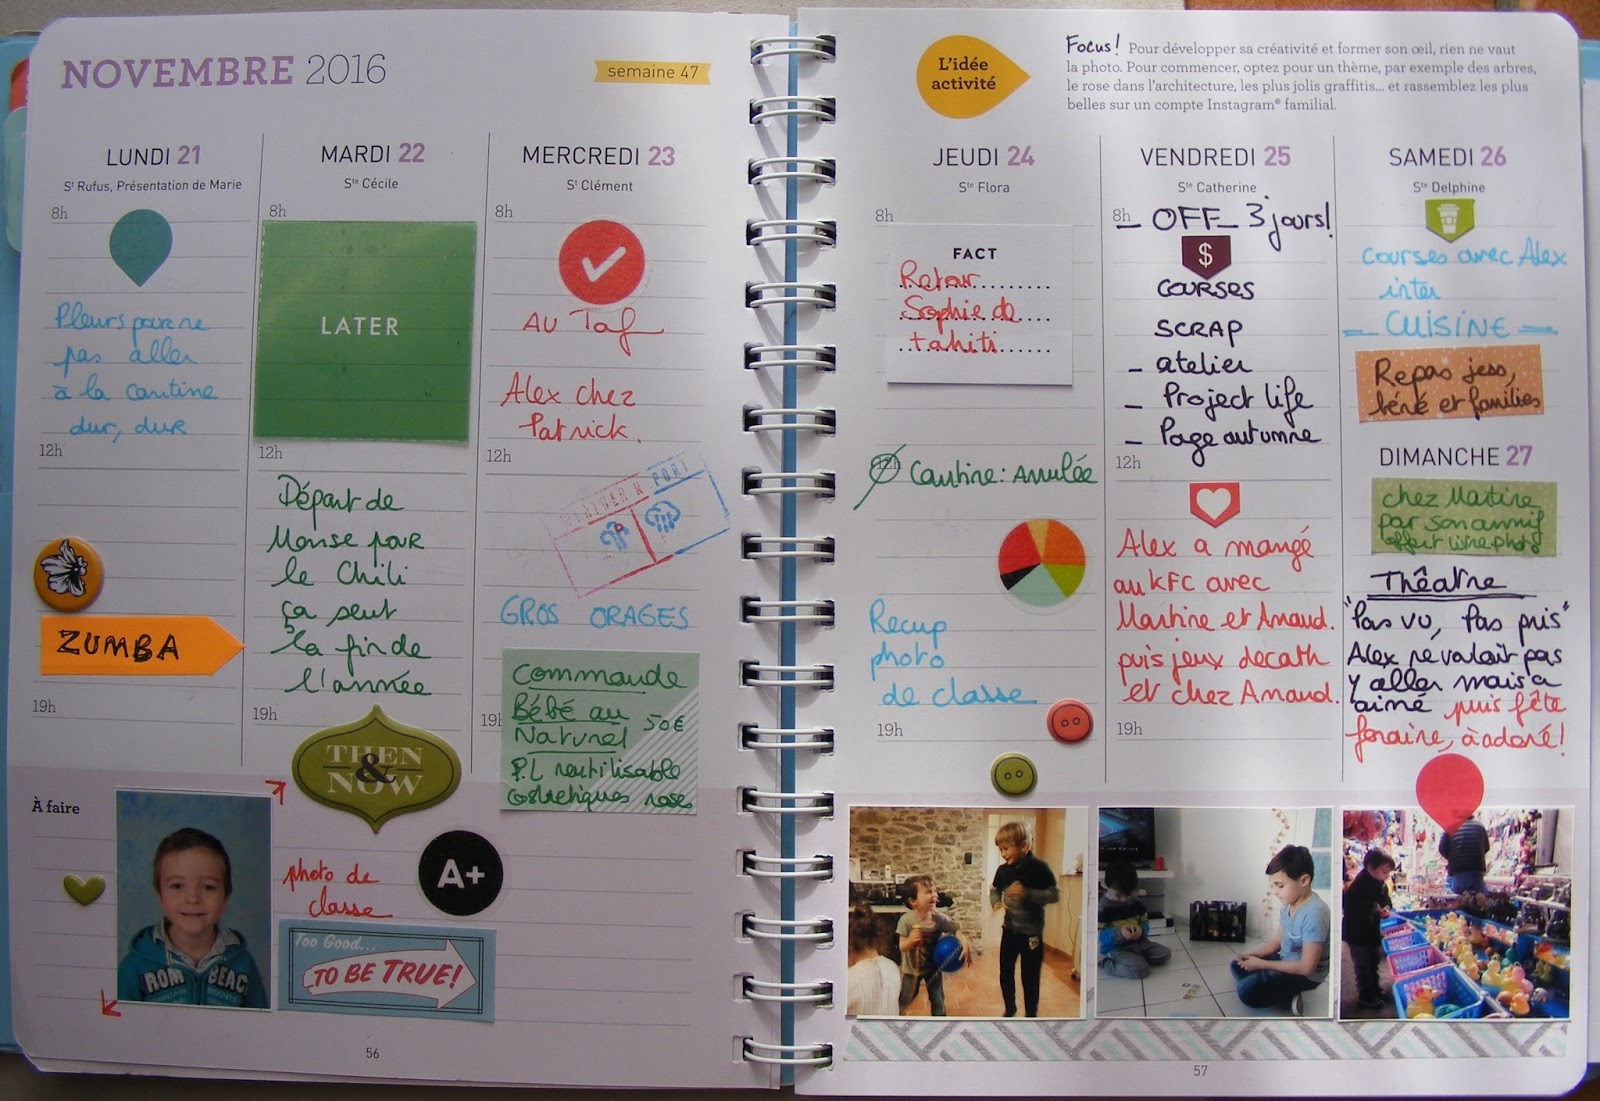 NOVEMBRE 2016
semaine 47
LUNDI 21
St Rufus, Présentation de Marie
8h
Pleurs pour ne
pas aller
à la cantine
dur, dur
12h
ZUMBA
19h
MARDI 22
Ste Cécile
8h
LATER
12h
Départ de
Monse pour
le Chili
ça sent
la fin de
l'année
19h
THEN
&
NOW
MERCREDI 23
St Clément
8h
AU Taf
Alex chez
Patrick.
12h
WEATHER REPORT
GROS ORAGES
19h
Commande
Bébé au
Naturel 50€
P.L réutilisable
cosmétiques roses
À faire
photo de
classe
A+
ROM BEAC
Too Good...
TO BE TRUE!
56
L'idée
activité
Focus! Pour développer sa créativité et former son œil, rien ne vaut
la photo. Pour commencer, optez pour un thème, par exemple des arbres,
le rose dans l'architecture, les plus jolis graffitis... et rassemblez les plus
belles sur un compte Instagram® familial.
JEUDI 24
Ste Flora
8h
FACT
Retour
Sophie de
tahiti
12h
Cantine: Annulée
Recup
photo
de classe
19h
VENDREDI 25
Ste Catherine
8h
_ OFF _ 3 jours!
$
COURSES
SCRAP
- atelier
- Project life
- Page automne
12h
Alex a mangé
au KFC avec
Martine et Arnaud.
puis jeux decath
et chez Arnaud.
19h
SAMEDI 26
Ste Delphine
Courses avec Alex
inter
- CUISINE -
Repas jess,
béné et familles
DIMANCHE 27
chez Martine
par son anniv
offert livre photo
Théatre
"Pas vu, Pas pris"
Alex ne valait pas
y aller mais a
aimé puis fête
foraine, à adoré!
57